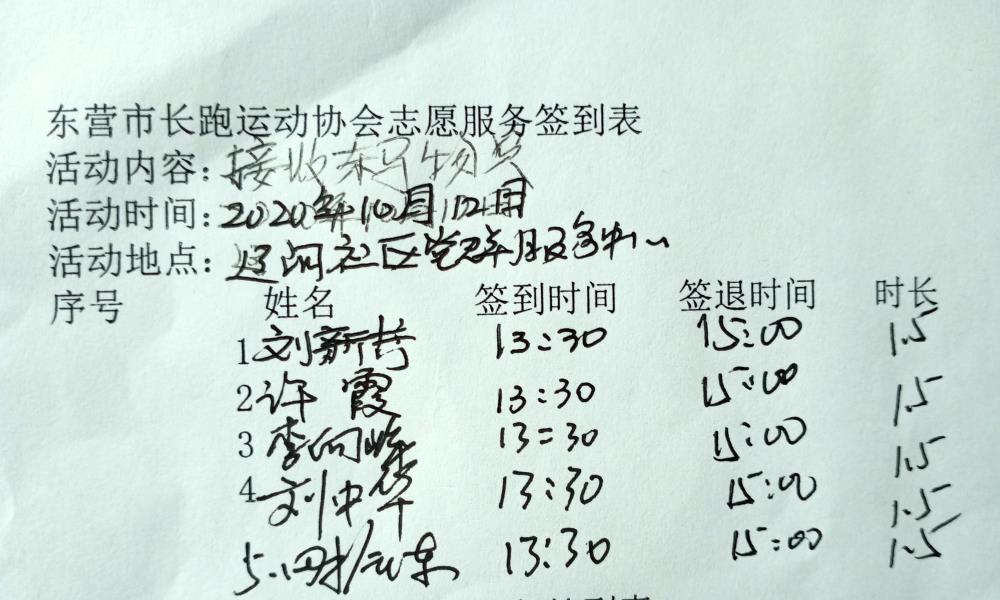 东营市长跑运动协会志愿服务签到表
活动内容：接收 物资
活动时间：2020年10月12日
活动地点：辽河社区党群服务中心
序号 姓名 签到时间 签退时间 时长
1 刘新 13:30 15:00 1.5
2 许霞 13:30 15:00 1.5
3 李向 13:30 15:00 1.5
4 刘中华 13:30 15:00 1.5
5. 田 东 13:30 15:00 1.5